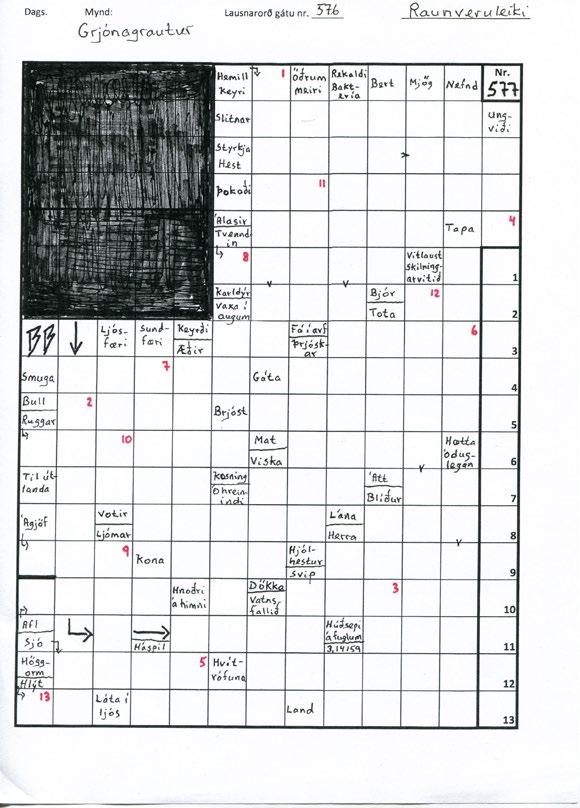 Dags. Mynd: Lausnarorð gátu nr. 576 Raunveruleiki
Grjónagrautur
Hemill 1 Öðrum Rekaldi Bert Mjög Nefnd Nr.
Keyri meiri Bakt- 577
ería
Slitnar Ung-
viði
Styrkja
Hest
Þokaði 11
Álasir Tapa 4
Tvennd-
in
8 Vitlaust 1
Skilning-
arvitið
Karldýr Bjór 12 2
Vaxa í Tota
augum
BB Ljós- Sund- Keyrði Fá í arf 6 3
færi færi Æðir Þrjósk-
ar
Smuga 7 Gáta 4
Bull 2 Brjóst 5
Ruggar
10 Mat Hætta 6
Viska óðus-
legan
Til út- Kosning Átt 7
landa Óhrein- Blíður
indi
Ágjöf Votir Lána 8
Ljómar Herra
9 Kona Hjól- 9
hestur
Svip
Hnoðri Dökka 3 10
á himni Vatns-
fallið
Afl Háspil Húðsepi 11
Sjó á fuglum
3,14159
Högg- 5 Hvít- 12
orm rófuna
Hlýt
13 Láta í Land 13
ljós